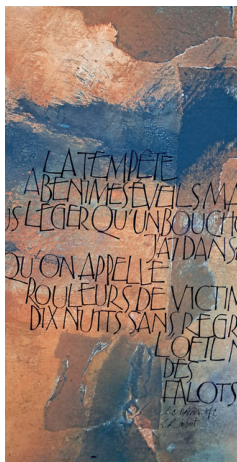 LA TEMPÊTE
A BÉNI MES ÉVEILS MA
US LÉGER QU'UN BOUCHO
J'AI DANS
QU'ON APPELLE
ROULEURS DE VICTIM
DIX NUITS SANS REGR
L'OEIL N
DES
FALOTS